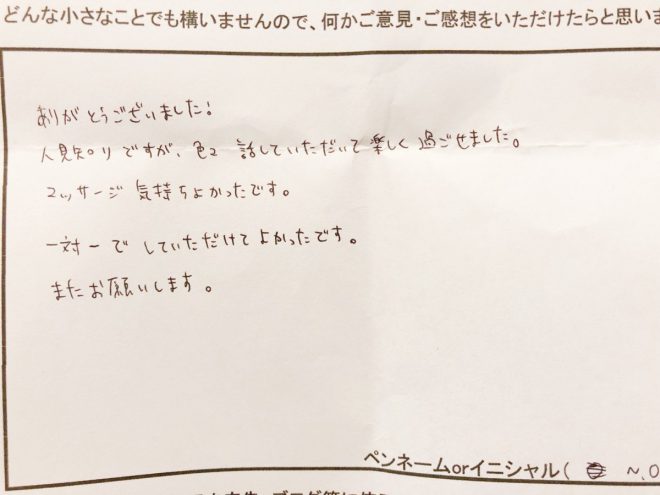 どんな小さなことでも構いませんので、何かご意見・ご感想をいただけたらと思いま
ありがとうございました!
人見知りですが、色々 話していただいて楽しく過ごせました。
マッサージ 気持ちよかったです。
一対一で していただけて よかったです。
またお願いします。
ペンネームorイニシャル(